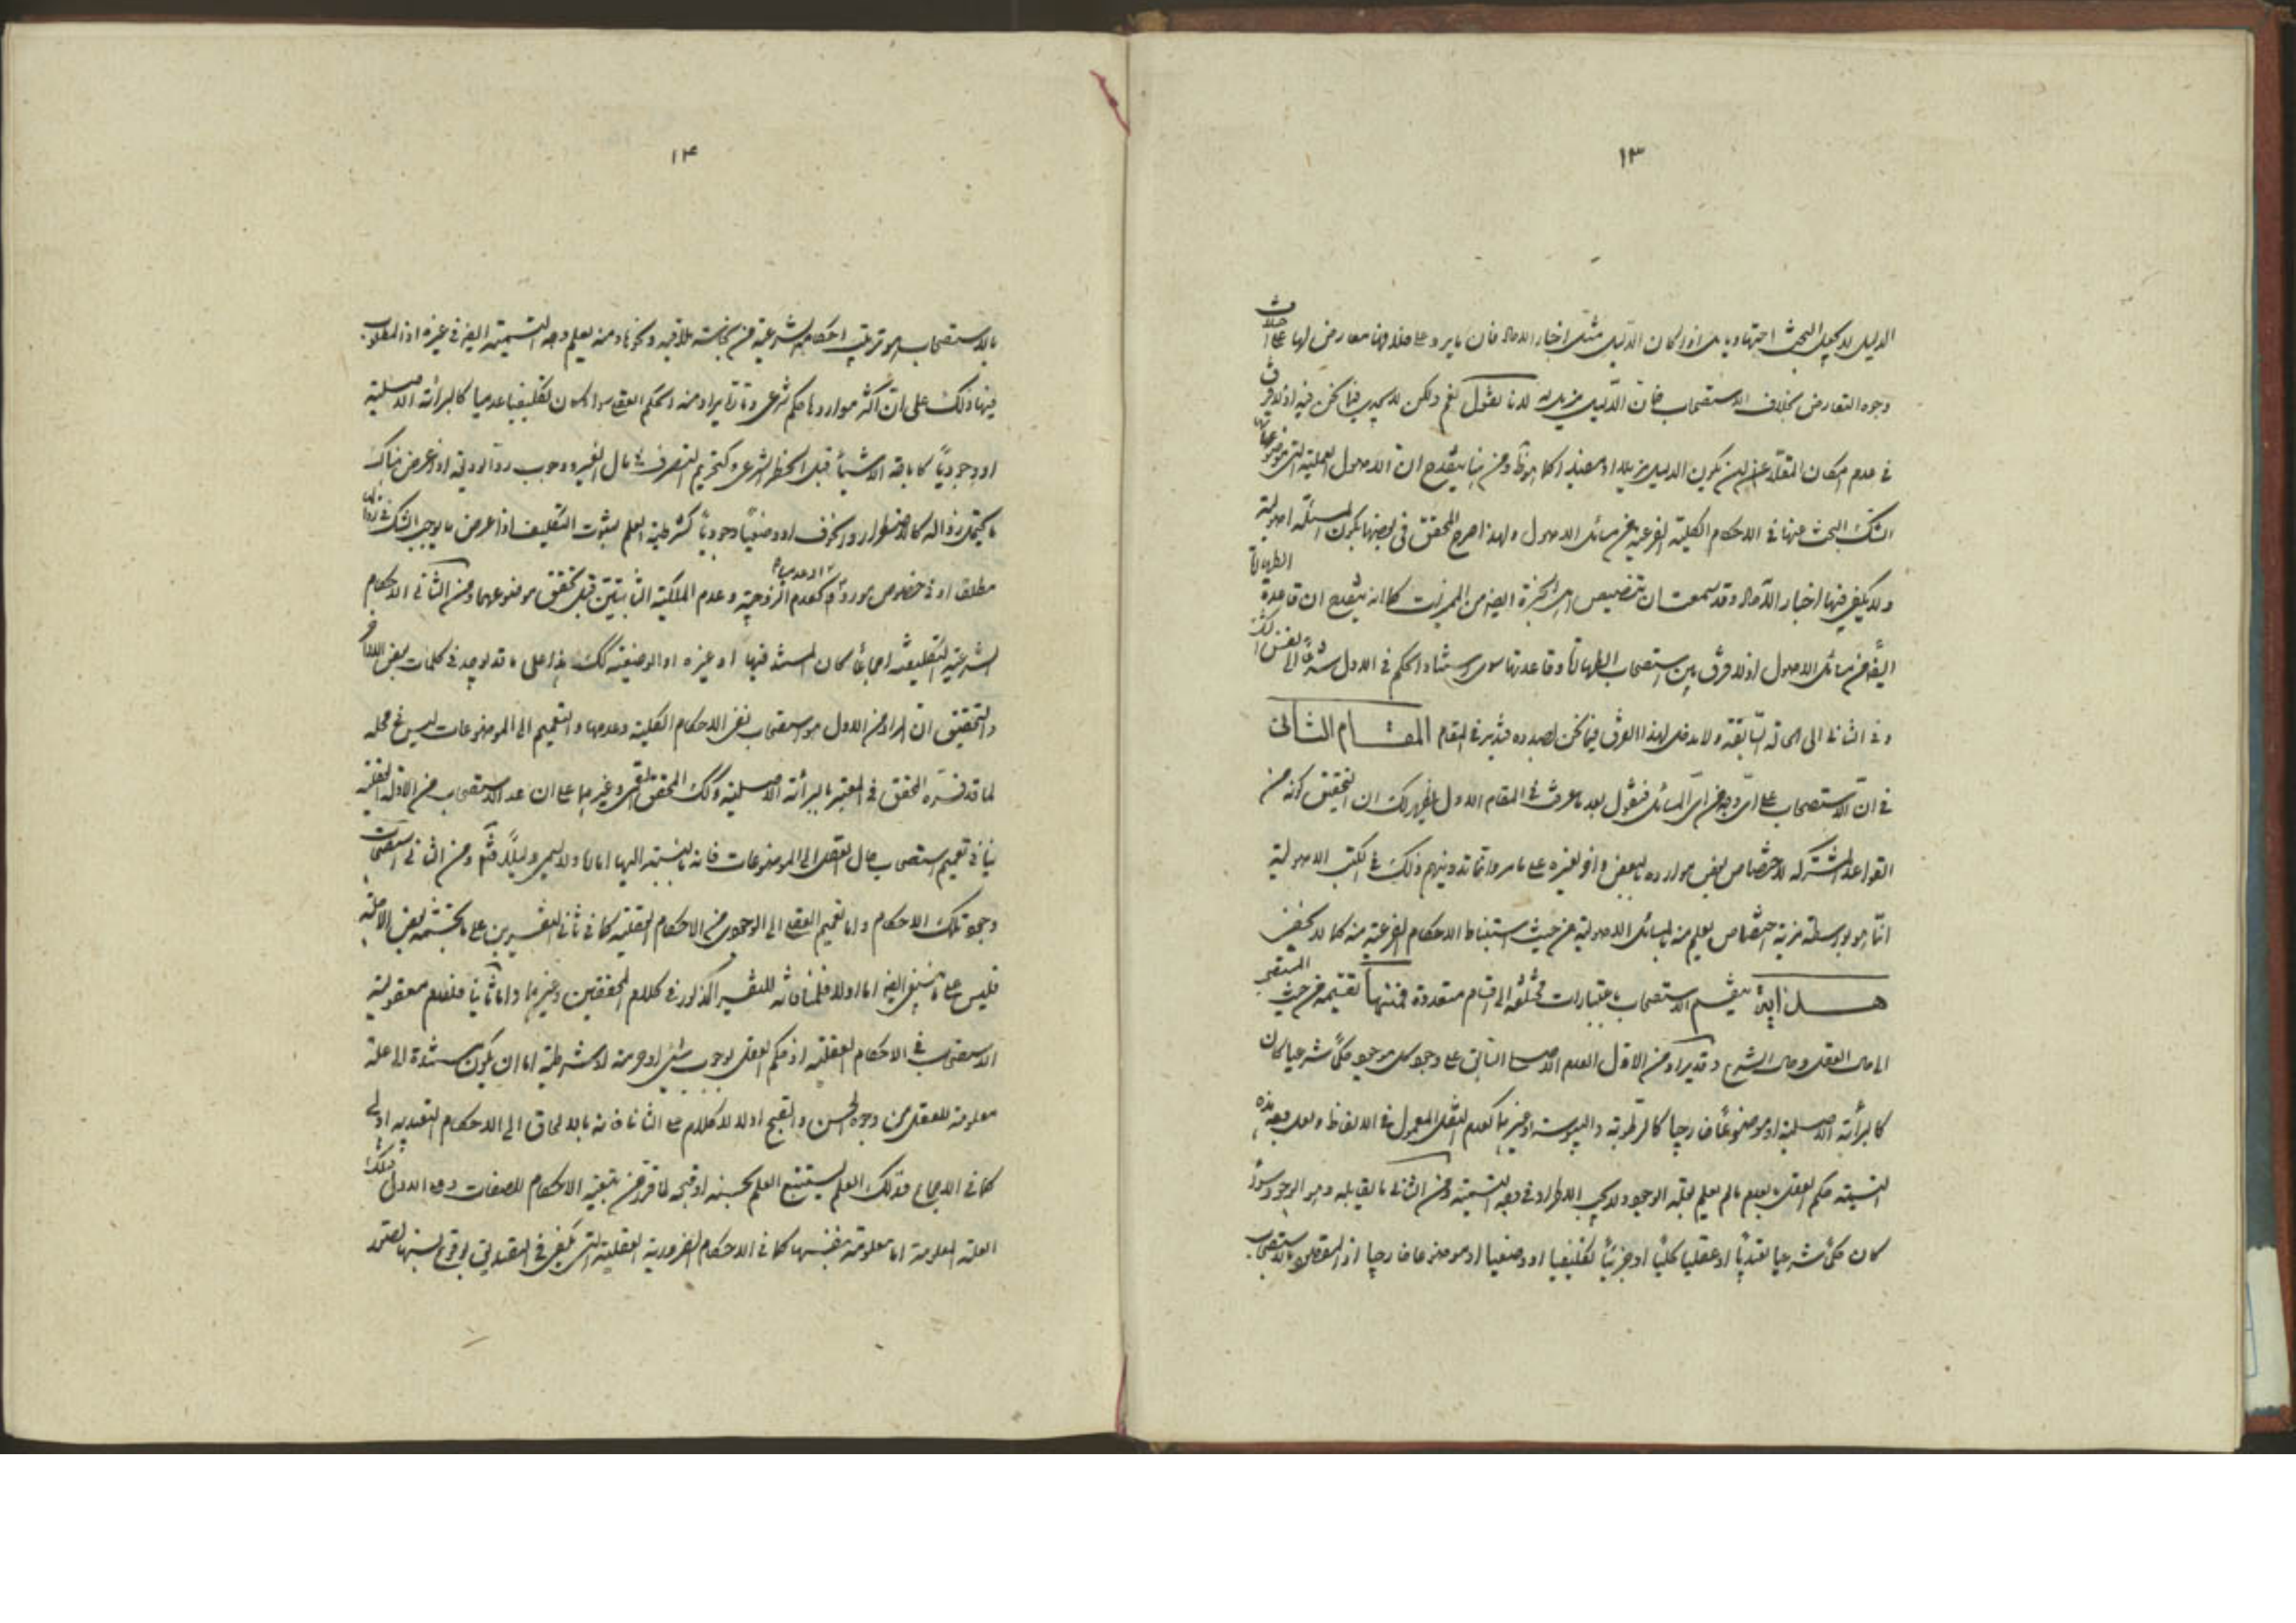 ١٣
الدليل لا يكون البحث اجتهاديا اذ ان كان الدليل مثل اخبار الاحاد فان ما يرد على خلافها معارض لها على اختلاف
وجوه التعارض بخلاف الاستصحاب فان الدليل مزيل له لانا نقول نعم ولكن لا يجدي فيما نحن فيه اذ لا فرق
في عدم امكان المقلد بين ان يكون الدليل مزيلا او معينا كما هو ظ ومن هنا ينقدح ان الاصول العملية التي موضوعها
الشك البحث عنها في الاحكام الكلية الفرعية من مسائل الاصول ولهذا صرح المحقق في بكون المسئلة اصولية
ولا يكفي فيها اخبار الآحاد وقد سمعت ان تخصيص ايضا من كما انه ينقدح ان قاعدة الطهارة
ايضا من مسائل الاصول اذ لا فرق بين استصحاب الطهارة وقاعدتها سوى استناد الحكم في الاول شرعا الى نفس الشك
وفي الثاني الى الحالة السابقة ولا مدخل لهذا الفرق فيما نحن بصدده فتدبر في المقام المقام الثاني
في ان الاستصحاب على اي وجه من اي المسائل فنقول بعد ما عرفت في المقام الاول يظهر لك ان التحقيق كونه من
القواعد المشتركة لاختصاص بعض موارده بالبعض والاخر لغيره على ما مر وانما تدوينهم ذلك في الكتب الاصولية
انما هو بواسطة مزية اختصاص يعلم منه بالمسائل الاصولية من حيث استنباط الاحكام الفرعية منه كما لا يخفى
هداية ينقسم الاستصحاب باعتبارات مختلفة الى اقسام متعددة فمنها تقسيمه من حيث المستصحب
الى حال العقل وحال الشرع وقد يراد من الاول العدم الاصلي السابق على وجود كل موجود حكما شرعيا كان
كالبرائة الاصلية او موضوعا خارجيا كالرطوبة واليبوسة او غيرهما كعدم النقل المعمول في الالفاظ ولعل وجه هذه
التسمية حكم العقل بعدم ما لم يعلم بعلة الوجود ولا يجب الاطراد في وجه التسمية ومن الثاني ما يقابله وهو الوجود سواء
كان حكما شرعيا تعبديا او عقليا كليا او جزئيا تكليفيا او وضعيا او موضوعا خارجيا اذ المقصود بالاستصحاب
١٤
بالاستصحاب هو ترتيب احكامه الشرعية من نجاسة ملاقيه ونحوها ومنه يعلم وجه التسمية ايضا في غيره اذ المطلوب
فيها ذلك على ان اكثر مواردها حكم شرعي وتارة يراد منه حكم العقل سواء كان تكليفيا عدميا كالبرائة الاصلية
او وجوديا كاباحة الاشياء قبل الحظر الشرعي وكتحريم التصرف في مال الغير ووجوب رد الوديعة اذا عرض هناك
ما يحتمل زواله كالاضطرار والخوف او وضعيا وجوديا كشرطية العلم بثبوت التكليف اذا عرض ما يوجب الشك في زوالها
مطلقا او في خصوص مورد او عدميا كعدم الزوجية وعدم الملكية الثابتتين قبل تحقق موضوعهما ومن الثاني الاحكام
الشرعية التكليفية اجماعا كان المستند فيها او غيره او الوضعية كك هذا على ما قد يوجد في كلمات بعض
والتحقيق ان المراد من الاول هو استصحاب نفي الاحكام الكلية وعدمها والتعميم الى الموضوعات ليس في محله
لما قد فسره المحقق في المعتبر بالبرائة الاصلية وكك المحقق القمي وغيرهما على ان عد الاستصحاب من الادلة العقلية
ينافي تعميم استصحاب حال العقل الى الموضوعات فانه بالنسبة اليها امارة ولا يسمى دليلا فتم ومن الثاني استصحاب
وجود تلك الاحكام واما تعميم العقلي الى الوجودي من الاحكام العقلية كما في ثاني التفسيرين على ما تجشمه بعض الاجلة
فليس على ما ينبغي ايضا اما اولا فلمنافاته للتفسير المذكور في كلام المحققين وغيرهما واما ثانيا فلعدم معقولية
الاستصحاب في الاحكام العقلية اذ حكم العقل بوجوب شيء او حرمته او شرطيته اما ان يكون مستندة الى علة
معلومة للعقل من وجوه الحسن والقبح او لا لا كلام على الثاني فانه بالالحاق الى الاحكام التعبدية اولى
كما في الاجماع فذلك العلم يستتبع العلم بحسنه او قبحه لما قرر من تبعية الاحكام للصفات وعلى الاول فتلك
العلة المعلومة اما معلومة بنفسها كما في الاحكام الضرورية العقلية التي يكفي في التصديق بوقوع نسبتها تصور